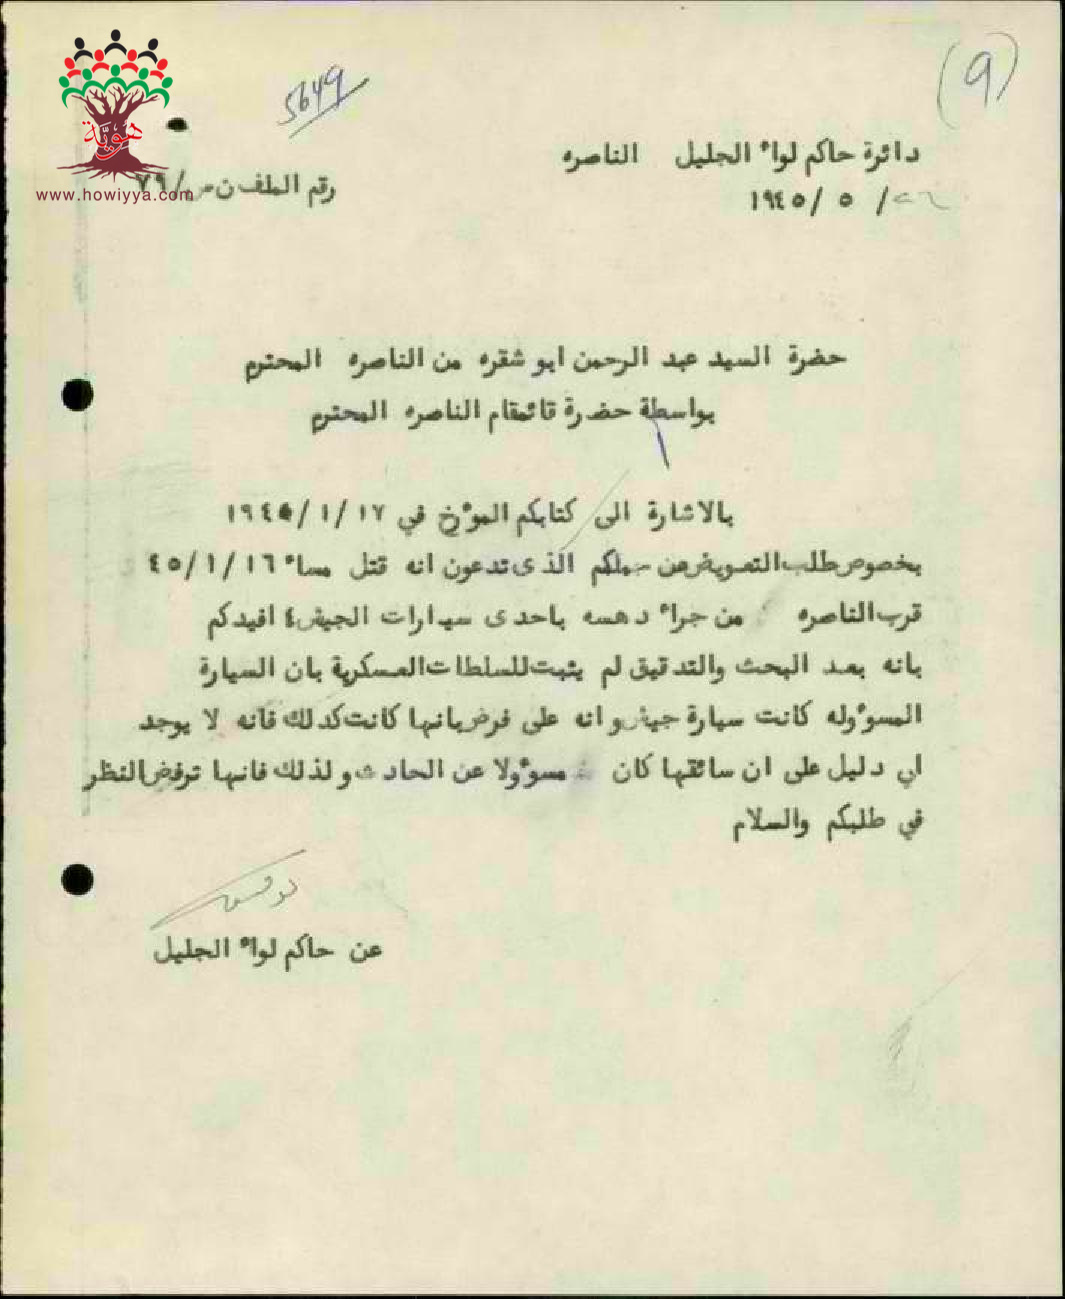 (9)
5649
هوية
www.howiyya.com
دائرة حاكم لواء الجليل الناصره
رقم الملف ن ص/٧٩
/ ٥ /١٩٤٥
حضرة السيد عبد الرحمن ابو شقره من الناصره المحترم
بواسطة حضرة قائمقام الناصره المحترم
بالاشارة الى كتابكم المؤرخ في ١٧ /١ /١٩٤٥
بخصوص طلب التعويض عن جملكم الذى تدعون انه قتل مساء ١٦ /١ /٤٥
قرب الناصره من جراء دهسه باحدى سيارات الجيش٤ افيدكم
بانه بعد البحث والتدقيق لم يثبت للسلطات العسكرية بان السيارة
المسؤوله كانت سيارة جيش و انه على فرض بانها كانت كذلك فانه لا يوجد
اي دليل على ان سائقها كان مسؤولا عن الحادث و لذلك فانها ترفض النظر
في طلبكم والسلام
عن حاكم لواء الجليل